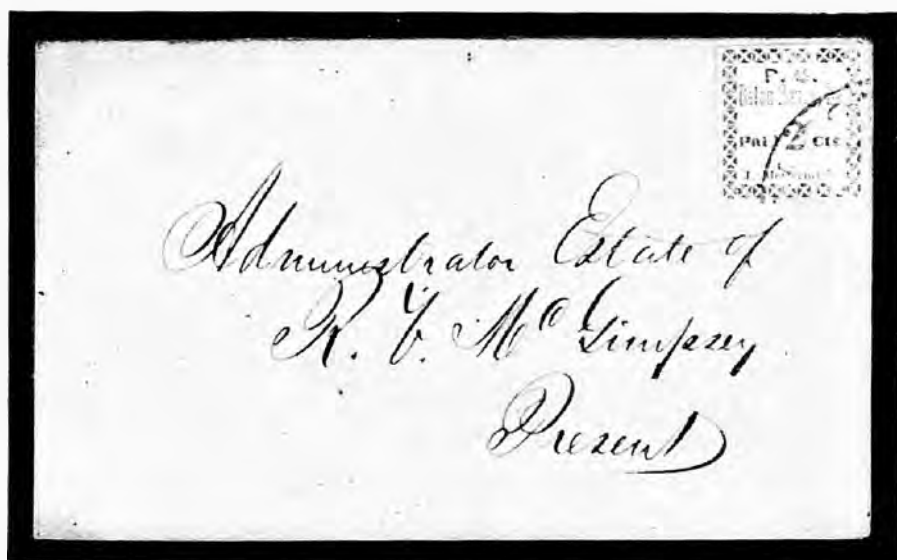 P. O.
Baton Rouge
Paid 2 Cts
Administrator Estate of
R. T. McGimpsey
Present